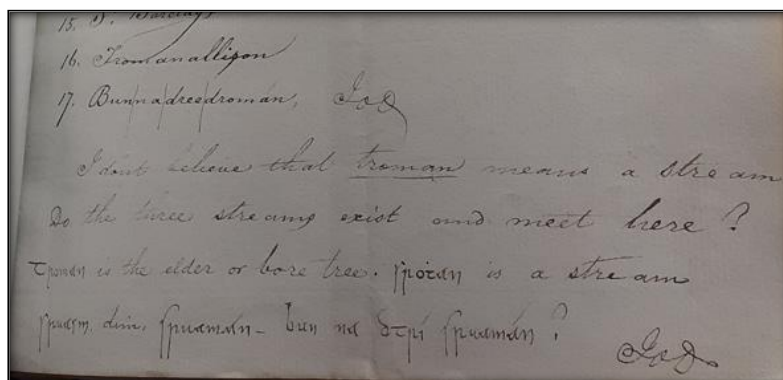 15. J. Barclay's
16. Tromanallison
17. Bun/na/dree/dromán, JOD
I don't believe that troman means a stream
Do the three streams exist and meet here?
troman is the elder or bore tree. sroṫan is a stream
sruaim, dim, sruamán – bun na dtrí sruamán?
JOD